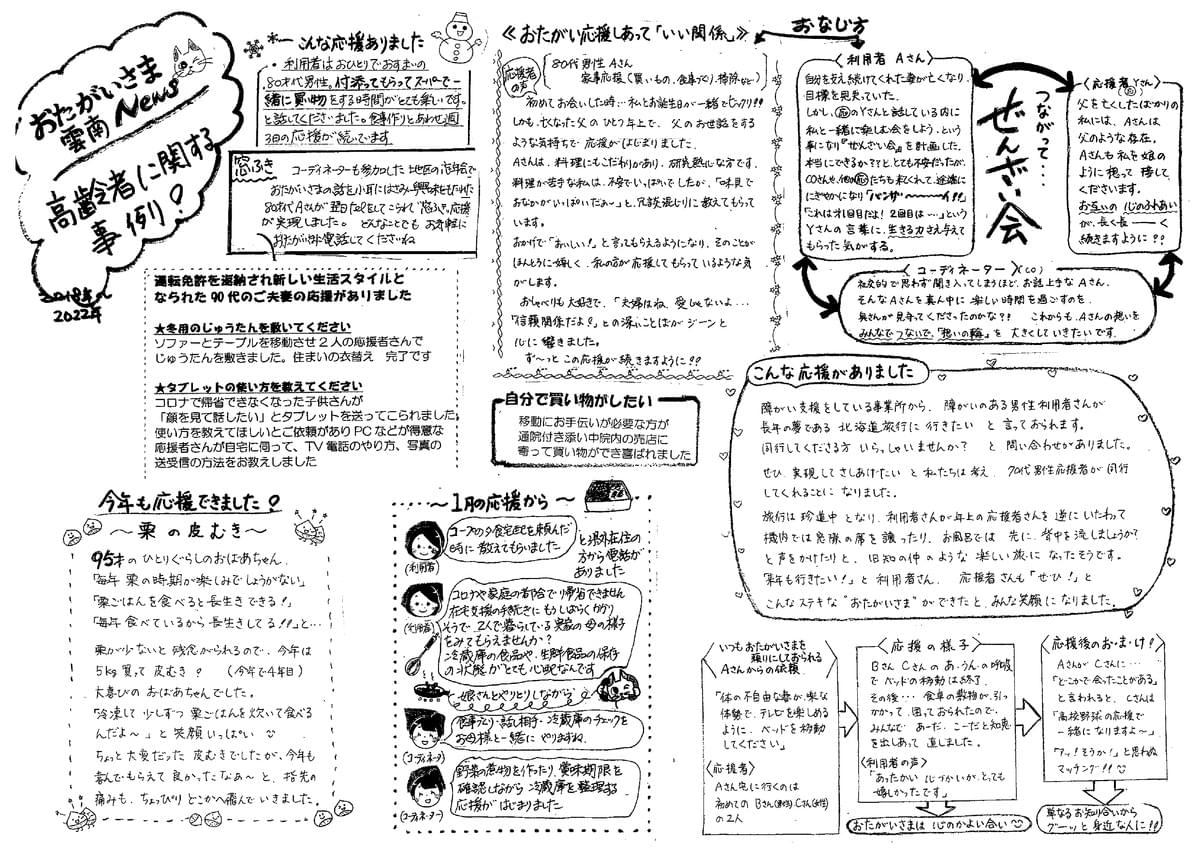 おたがいさま
雲南News
高齢者に関する
事例!
2018年〜
2022年
こんな応援ありました
・利用者はおひとりでおすまいの
80才代男性。付添ってもらってスーパーで一
緒に買い物をする時間がとても楽しいです。
と話してくださいました。食事作りとあわせ週
3日の応援が続いています
窓ふき
コーディネーターも参加した地区の忘年会で
おたがいさまの話を小耳にはさみ興味をもたれた
80才代Aさんが翌日TELをしてこられ"窓ふき"応援
が実現しました。どんなことでもお気軽に
おたがいさまへ電話してくださいね
運転免許を返納され新しい生活スタイルと
なられた90代のご夫妻の応援がありました
★冬用のじゅうたんを敷いてください
ソファーとテーブルを移動させ2人の応援者さんで
じゅうたんを敷きました。住まいの衣替え 完了です
★タブレットの使い方を教えてください
コロナで帰省できなくなった子供さんが
「顔を見て話したい」とタブレットを送ってこられました。
使い方を教えてほしいとご依頼がありPCなどが得意な
応援者さんが自宅に伺って、TV電話のやり方、写真の
送受信の方法をお教えしました
≪おたがい応援しあって「いい関係」≫
応援者の方
80代男性Aさん
家事応援(買いもの、食事づくり、掃除など)
初めてお会いした時…私とお誕生日が一緒でビックリ!!
しかも、亡くなった父のひとつ年上で、父のお世話をする
ような気持ちで応援がはじまりました。
Aさんは、料理にもこだわりがあり、研究熱心な方です。
料理が苦手な私は、不安でいっぱいでしたが、「味見で
おなかがいっぱいだぁ〜」と、冗談混じりに教えてもらって
います。
おかげで「おいしい!」と言ってもらえるようになり、そのことが
ほんとうに嬉しく、私の方が応援してもらっているような気
がします。
おしゃべりも大好きで、「夫婦はね、愛じゃないよ…
「信頼関係だよ!」との深いことばがジーンと
心に響きました。
ず〜っとこの応援が続きますように!!
自分で買い物がしたい
移動にお手伝いが必要な方が
通院付き添い中院内の売店に
寄って買い物ができ喜ばれました
おなじ方
つながって…
ぜんざい会
〈利用者 Aさん〉
自分を支え続けてくれた妻が亡くなり、
目標を見失っていた。
しかし、応のYさんと話している内に
私と一緒に楽しむ会をしよう。という
事になり『ぜんざい会』を計画した。
本当にできるか??と、とても不安だったが、
COさんや、他の応たちも来てくれて、盛大に
にぎやかになり「バンザ〜〜イ!!」
「これはオレ1回目だよ!2回目は…」という
Yさんの言葉に、生きる力さえ与えて
もらった気がする。
〈応援者Yさん〉
(応)
父を亡くしたばかりの
私には、Aさんは
父のような存在。
Aさんも私を娘の
ように想って接して
くださいます。
お互いの心のふれあい
が、長く長ーーーく
続きますように??
〈コーディネーター〉(CO)
社交的で思わず聞き入ってしまうほど、お話上手なAさん。
そんなAさんを真ん中に楽しい時間を過ごすのを、
奥さんが見守ってくださったのかな?? これからも、Aさんの想いを
みんなでつないで、「想いの輪」を大きくしていきたいです。
こんな応援がありました
障がい支援をしている事業所から、障がいのある男性利用者さんが
長年の夢である北海道旅行に行きたいと言っておられます。
同行してくださる方いらっしゃいませんか? と問い合わせがありました。
ぜひ、実現してさしあげたいと私たちは考え、70代男性応援者が同行
してくれることになりました。
旅行は珍道中となり、利用者さんが年上の応援者さんを逆にいたわって
機内では窓際の席を譲ったり、お風呂では先に、背中を流しましょうか?
と声をかけたりと、旧知の仲のような楽しい旅になったそうです。
「来年も行きたい!」と利用者さん、応援者さんも「ぜひ!」と
こんなステキな"おたがいさま"ができたと、みんな笑顔になりました。
今年も応援できました
〜栗の皮むき〜
95才のひとりぐらしのおばあちゃん、
「毎年栗の時期が楽しみでしょうがない」
「栗ごはんを食べると長生きできる!」
「毎年食べているから長生きしてる!!」と…
栗が少ないと残念がられるので、今年は
5kg買って皮むき (今年で4年目)
大喜びのおばあちゃんでした。
「冷凍して少しずつ栗ごはんを炊いて食べる
んだよ〜」と笑顔いっぱい
ちょっと大変だった皮むきでしたが、今年も
喜んでもらえて良かったなぁ〜と、指先の
痛みも、ちょっぴりどこかへ飛んでいきました。
〜1月の応援から〜
コープの夕食宅配を頼んだ
時に教えてもらいました
と県外在住の
方から電話が
ありました
(利用者)
コロナや家庭の都合で帰省できません
在宅支援の手続きにもうしばらくかかり
そうで、2人で暮らしている実家の母の様子
をみてもらえませんか?
冷蔵庫の食品や、生鮮食品の保存
の状態がとても心配なんです
(利用者)
娘さんとやりとりしながら
食事づくり・話し相手・冷蔵庫のチェックを
お母様と一緒にやりますね。
(コーディネーター)
野菜の煮物を作ったり、賞味期限を
確認しながら冷蔵庫を整理する
応援がはじまりました
(コーディネーター)
いつもおたがいさまを
頼りにしておられる
Aさんからの依頼
「体の不自由な妻が、楽な
体勢で、テレビを楽しめる
ように、ベッドを移動
してください」
〈応援者〉
Aさん宅に行くのは
初めてのBさん(男性)Cさん(女性)
の2人
応援の様子
BさんCさんのあ・うんの呼吸
でベッドの移動は終了。
その後…食卓の敷物が、引っ
かかって、困っておられたので、
みんなであーだ、こーだと知恵
を出しあって直しました。
〈利用者の声〉
「あったかい心づかいが、とっても
嬉しかったです」
おたがいさまは心のかよい合い
応援後のお・ま・け!
AさんがCさんに…
「どこかで会ったことがある」
と言われると、Cさんは
「高校野球の応援で
一緒になりますよ〜」
「アッ!そうか!」と思わぬ
マッチング!!
単なるお知り合いから
グーッと身近な人に!!